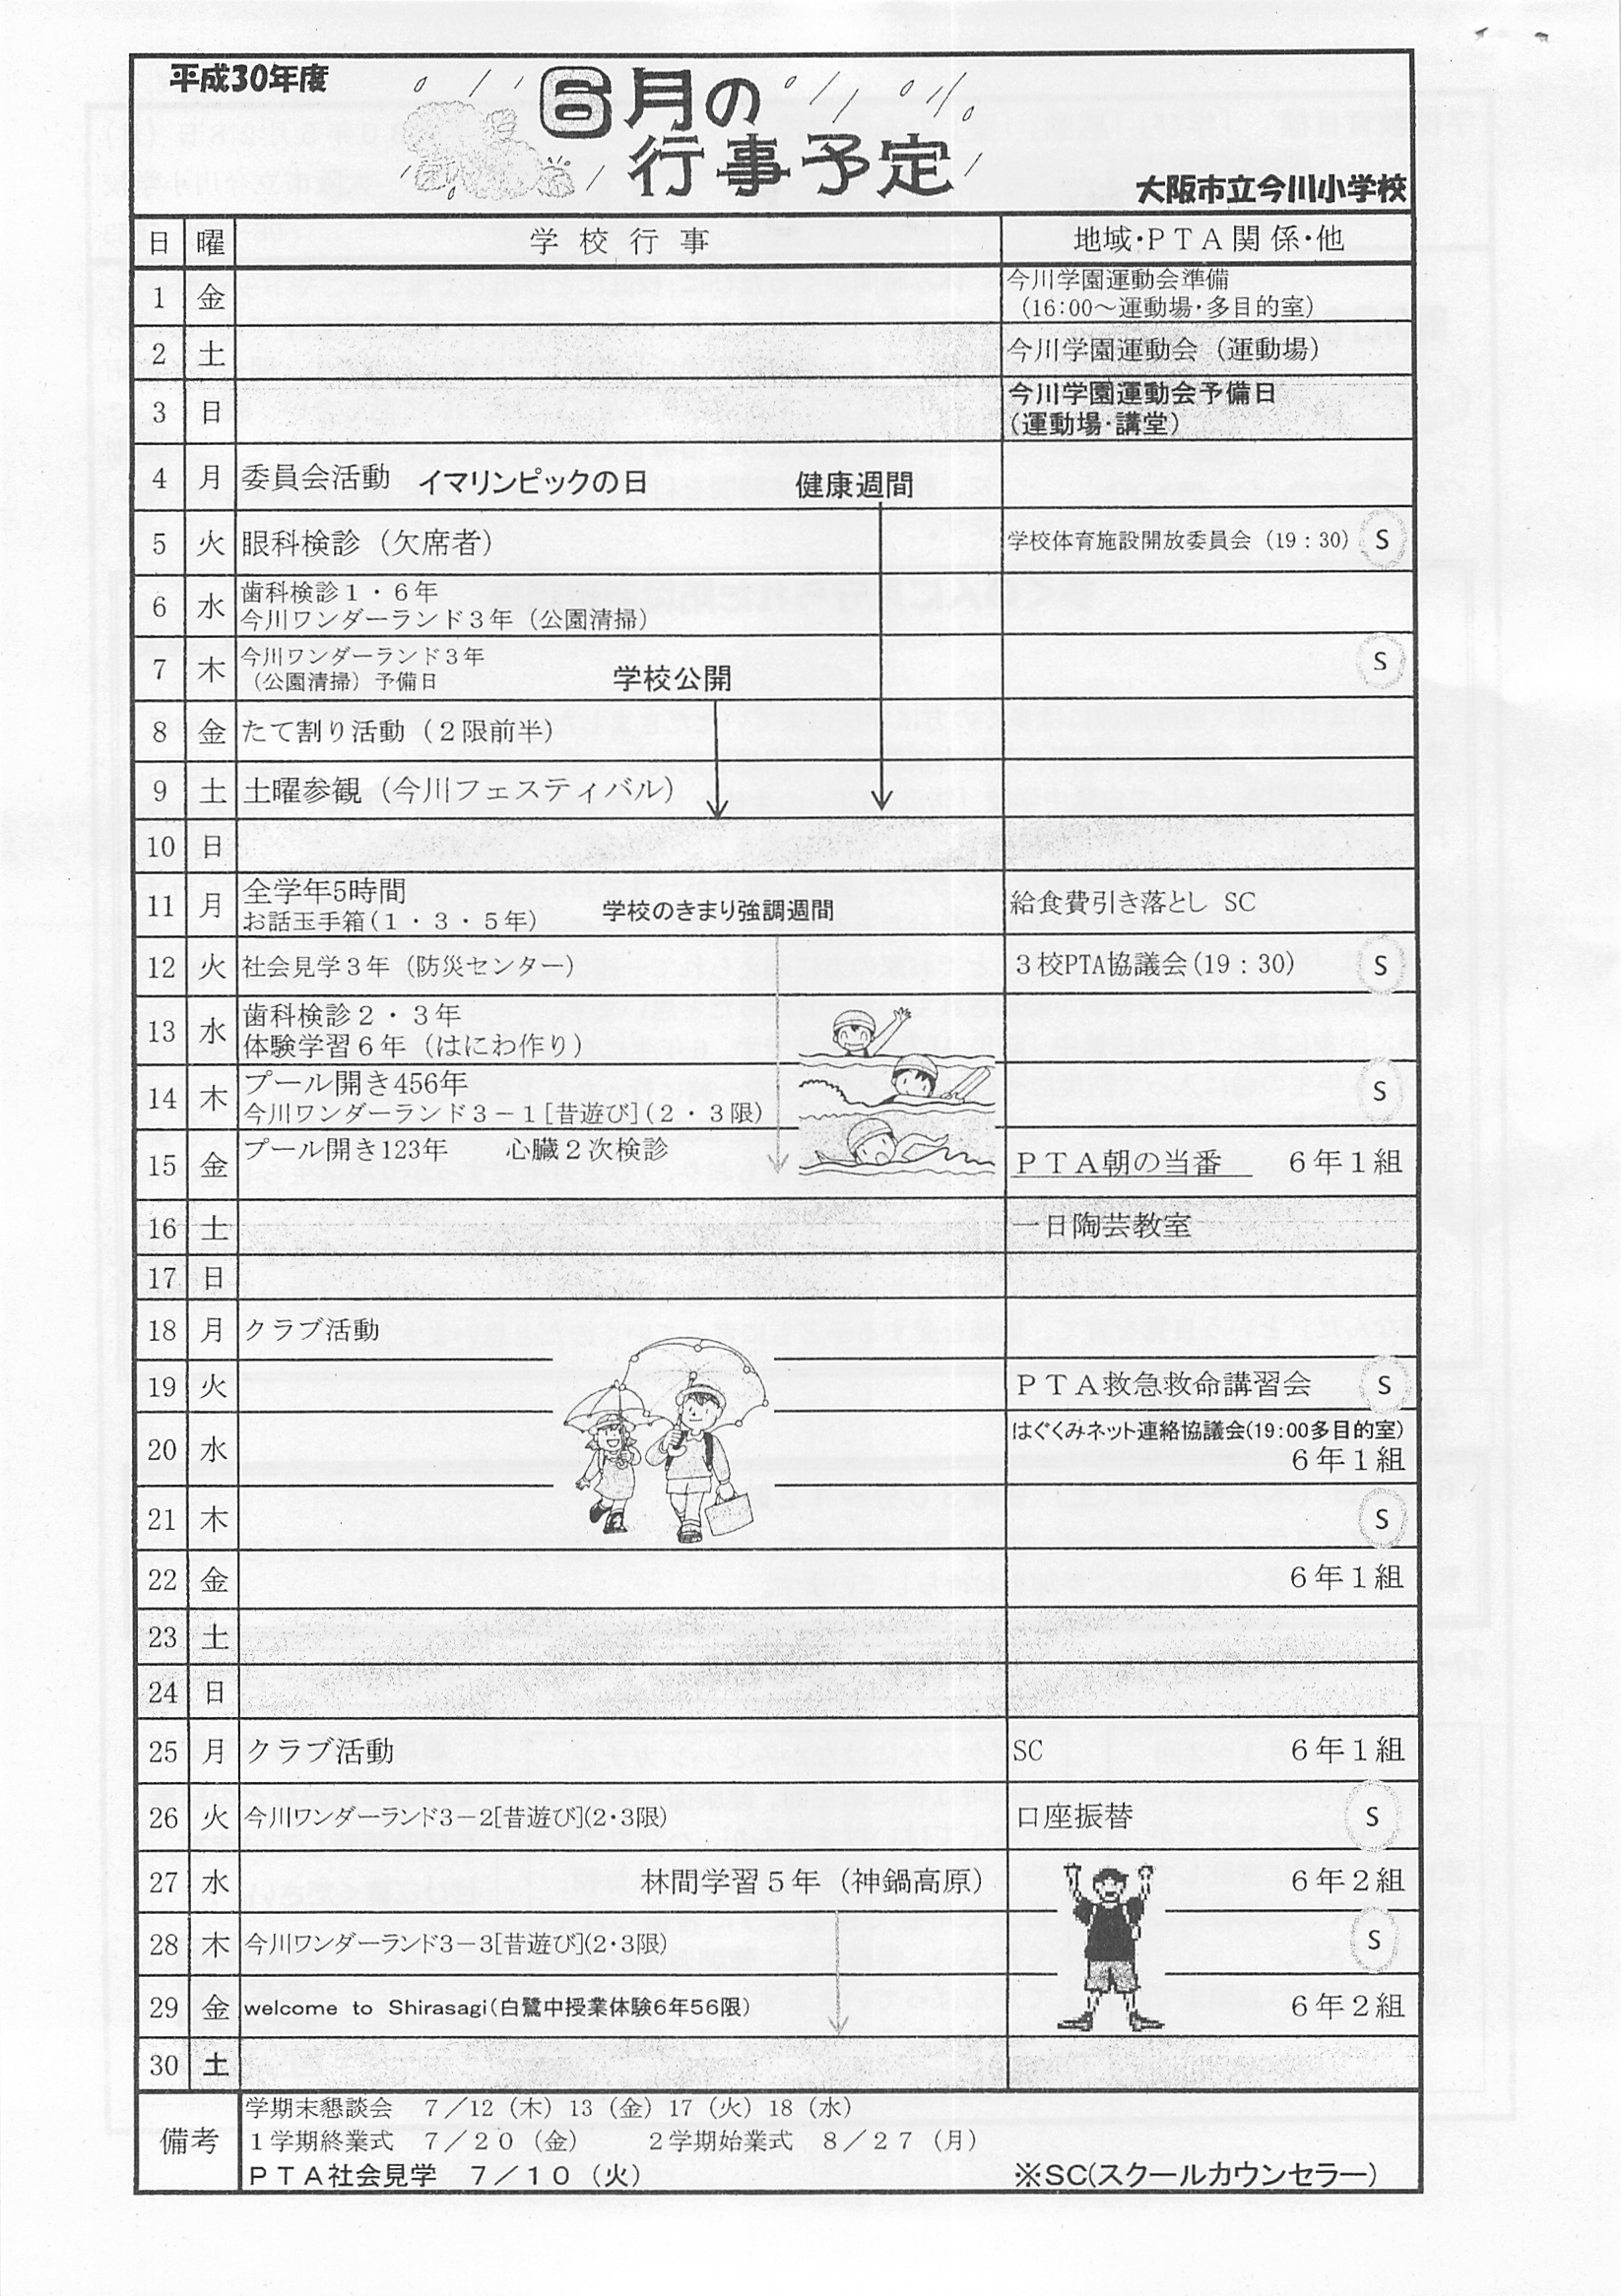 平成30年度
6月の
行事予定
大阪市立今川小学校
日 曜 学校行事 地域・PTA関係・他
1 金 今川学園運動会準備
(16:00～運動場・多目的室)
2 土 今川学園運動会（運動場）
3 日 今川学園運動会予備日
(運動場・講堂)
4 月 委員会活動 イマリンピックの日 健康週間
5 火 眼科検診（欠席者） 学校体育施設開放委員会（19：30） S
6 水 歯科検診１・６年
今川ワンダーランド３年（公園清掃）
7 木 今川ワンダーランド３年
（公園清掃）予備日 学校公開 S
8 金 たて割り活動（２限前半）
9 土 土曜参観（今川フェスティバル）
10 日
11 月 全学年5時間
お話玉手箱(１・３・５年) 学校のきまり強調週間 給食費引き落とし SC
12 火 社会見学３年（防災センター） ３校PTA協議会(19：30) S
13 水 歯科検診２・３年
体験学習６年（はにわ作り）
14 木 プール開き456年
今川ワンダーランド３－１[昔遊び](２・３限) S
15 金 プール開き123年 心臓２次検診 ＰＴＡ朝の当番 ６年１組
16 土 一日陶芸教室
17 日
18 月 クラブ活動
19 火 ＰＴＡ救急救命講習会 S
20 水 はぐくみネット連絡協議会(19:00多目的室)
６年１組
21 木 S
22 金 ６年１組
23 土
24 日
25 月 クラブ活動 SC ６年１組
26 火 今川ワンダーランド3－2[昔遊び](2・3限) 口座振替 S
27 水 林間学習５年（神鍋高原） ６年２組
28 木 今川ワンダーランド3－3[昔遊び](2・3限) S
29 金 welcome to Shirasagi(白鷺中授業体験6年56限) ６年２組
30 土
備考 学期末懇談会 ７／12（木）13（金）17（火）18（水）
１学期終業式 ７／２０（金） ２学期始業式 ８／２７（月）
ＰＴＡ社会見学 ７／１０（火） ※SC(スクールカウンセラー)